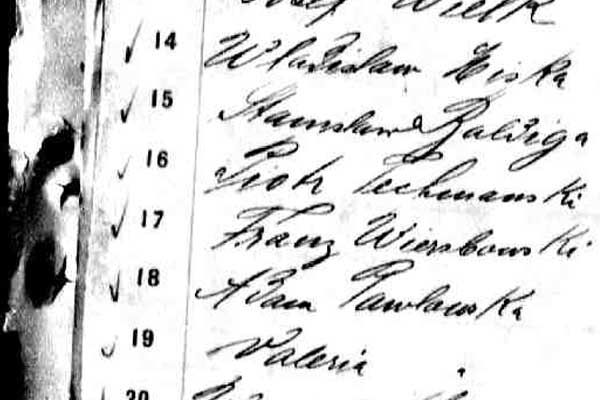 Wielk
14 Wladislaw Kiska
15 Stanslaw Zalviga
16 Piotr Techmanski
17 Franz Wiersbowski
18 Adam Pawlowska
19 Valeria "
20